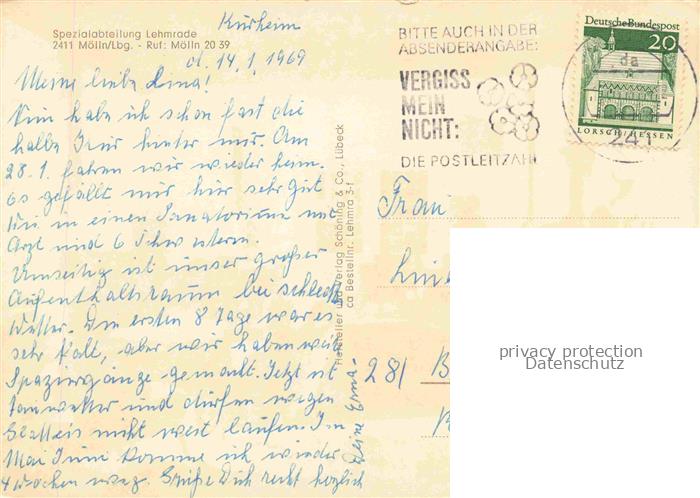 Spezialabteilung Lehmrade
2411 Mölln/Lbg. - Ruf: Mölln 20 39
Kurheim
d. 14.1.1969
Meine liebe Lina!
Nun habe ich schon fast die
halbe Kur hinter mir. Am
28.1. fahren wir wieder heim.
Es gefällt mir hier sehr gut
Wie in einen Sanatorium mit
Arzt und 6 Schwestern.
Umseitig ist unser großer
Aufenthaltsraum bei schlecht
Wetter. Die ersten 8 Tage war es
sehr kalt, aber wir haben weit
Spaziergänge gemacht. Jetzt ist
Tauwetter und dürfen wegen
Glatteis nicht weit laufen. Im
Mai Juni komme ich wieder
4 Wochen weg. Grüße Dich recht herzlich
Deine Erna
Hersteller und Verlag Schöning & Co., Lübeck
ca Bestellnr. Lehmra 3-1
BITTE AUCH IN DER
ABSENDERANGABE:
VERGISS
MEIN
NICHT:
DIE POSTLEITZAHL
Deutsche Bundespost
20
LORSCH/HESSEN
da
241
Frau
28
privacy protection
Datenschutz